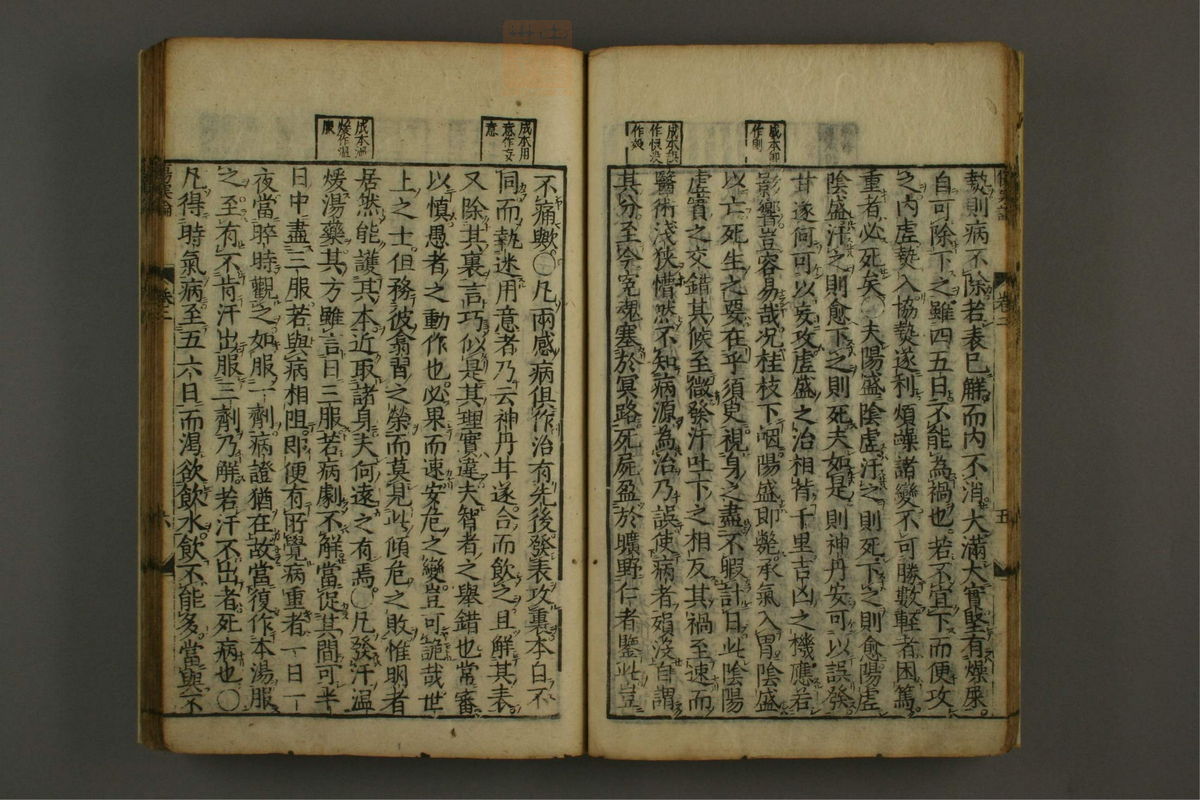 成本即
作則
熱則病不除若表已解而内不消大滿大實堅有燥屎
自可除下之雖四五日不能為禍也若不宜下而便攻
之内虛熱入協熱遂利煩躁諸變不可勝數輕者困篤
重者必死矣○夫陽盛陰虛汗之則死下之則愈陽虛
陰盛汗之則愈下之則死夫如是則神丹安可以誤發
甘遂何可以妄攻虛盛之治相背千里吉凶之機應若
影響豈容易哉况桂枝下咽陽盛即斃承氣入胃陰盛
以亡死生之要在乎須臾視身之盡不暇計日此陰陽
虛實之交錯其候至微發汗吐下之相反其禍至速而
醫術淺狹懵然不知病源為治乃誤使病者殞沒自謂
其分至今冤魂塞於冥路死屍盈於曠野仁者鑒此豈
成本用
意作安
意
不痛歟○凡兩感病俱作治有先後發表攻裏本自不
同而執迷用意者乃云神丹甘遂合而飲之且解其表
又除其裏言巧似是其理實違夫智者之舉錯也常審
以慎愚者之動作也必果而速安危之變豈可詭哉世
上之士但務彼翕習之榮而莫見此傾危之敗惟明者
居然能護其本近取諸身夫何遠之有焉○凡發汗温
煖湯藥其方雖言日三服若病劇不解當促其間可半
日中盡三服若與病相阻即便有所覺病重者一日一
夜當晬時觀之如服一劑病證猶在故當復作本湯服
之至有不肯汗出服三劑乃解若汗不出者死病也○
凡得時氣病至五六日而渴欲飲水飲不能多當與不